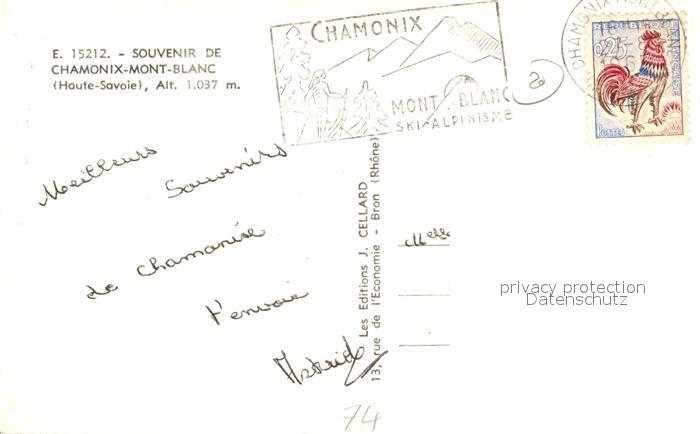 E. 15212. - SOUVENIR DE
CHAMONIX-MONT-BLANC
(Haute-Savoie), Alt. 1.037 m.
CHAMONIX
MONT BLANC
SKI-ALPINISME
20
CHAMONIX MONT
REPUBLIQUE FRANÇAISE
0,25
POSTES
Meilleurs
Souvenirs
de Chamonix
t'envoie
Astrid
Les Editions J. CELLARD
13, rue de l'Economie - Bron (Rhône)
Melle
privacy protection
Datenschutz
74